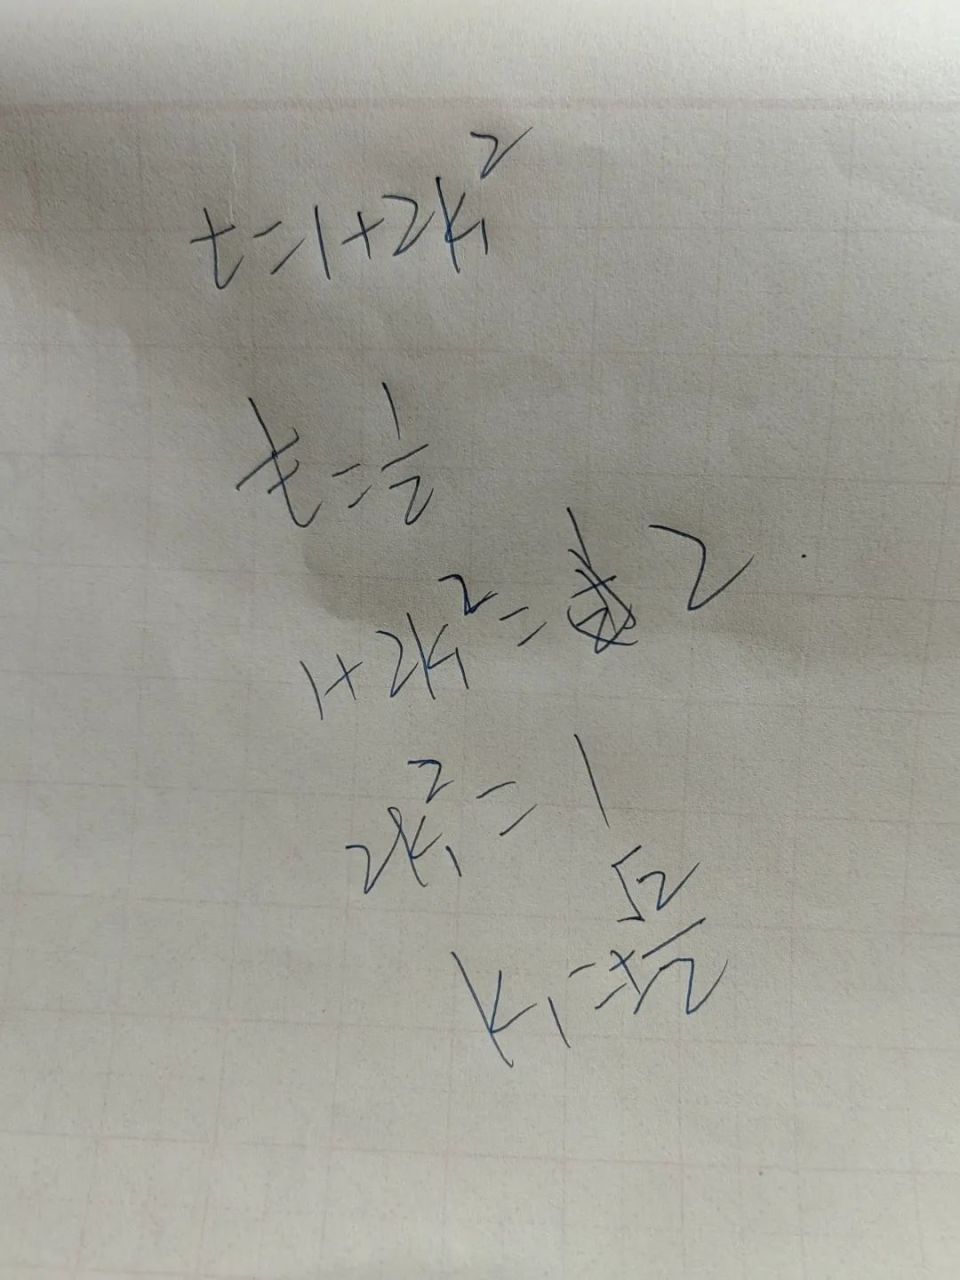 t=1+2k₁²
t=1/2
1+2k₁²=2
2k₁²=1
k₁=±√2/2